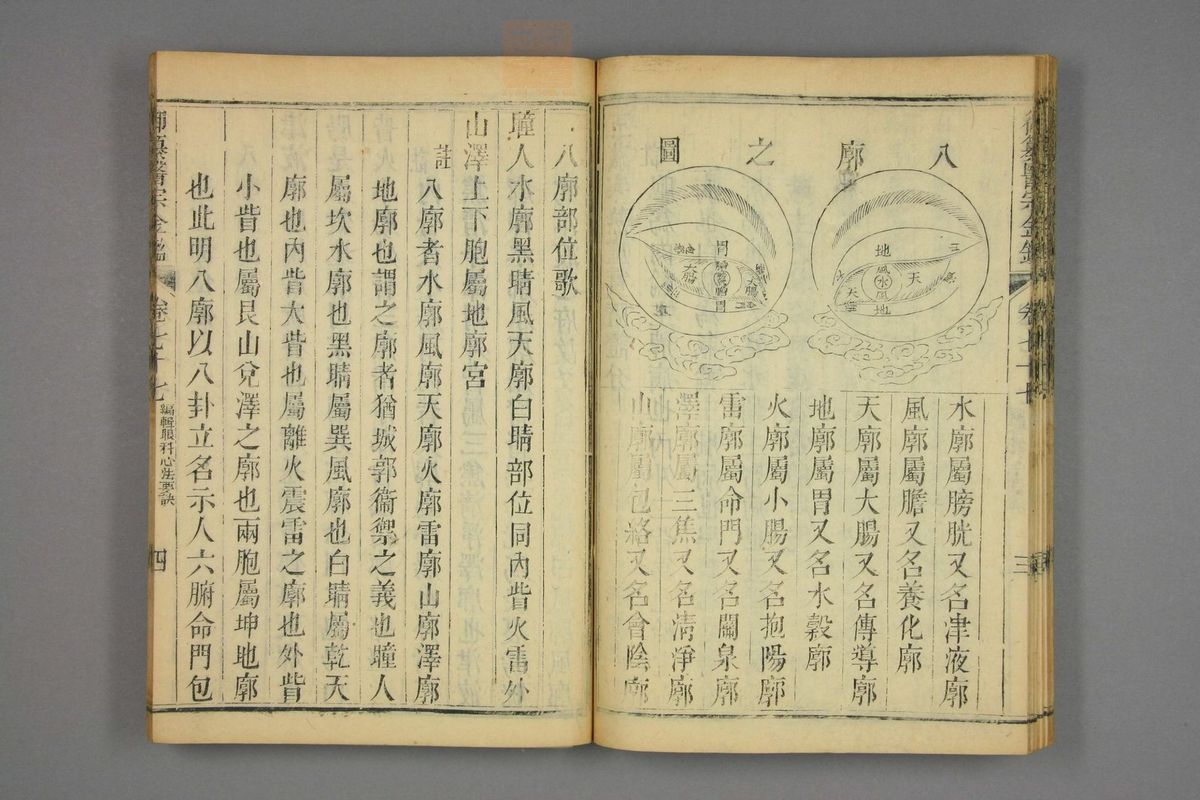 八廓之圖
三
地
風
水
風
地
天
天
胃
大腸
胃
大腸
水廓屬膀胱又名津液廓
風廓屬膽又名養化廓
天廓屬大腸又名傳導廓
地廓屬胃又名水穀廓
火廓屬小腸又名抱陽廓
雷廓屬命門又名關泉廓
澤廓屬三焦又名清淨廓
山廓屬包絡又名會陰廓
卷七十七
三
八廓部位歌
瞳人水廓黑睛風天廓白睛部位同內眥火雷外
山澤上下胞屬地廓宮
註
八廓者水廓風廓天廓火廓雷廓山廓澤廓
地廓也謂之廓者猶城郭衞禦之義也瞳人
屬坎水廓也黑睛屬巽風廓也白睛屬乾天
廓也內眥大眥也屬離火震雷之廓也外眥
小眥也屬艮山兌澤之廓也兩胞屬坤地廓
也此明八廓以八卦立名示人六腑命門包
御纂醫宗金鑑
卷七十七
編輯眼科心法要訣
四